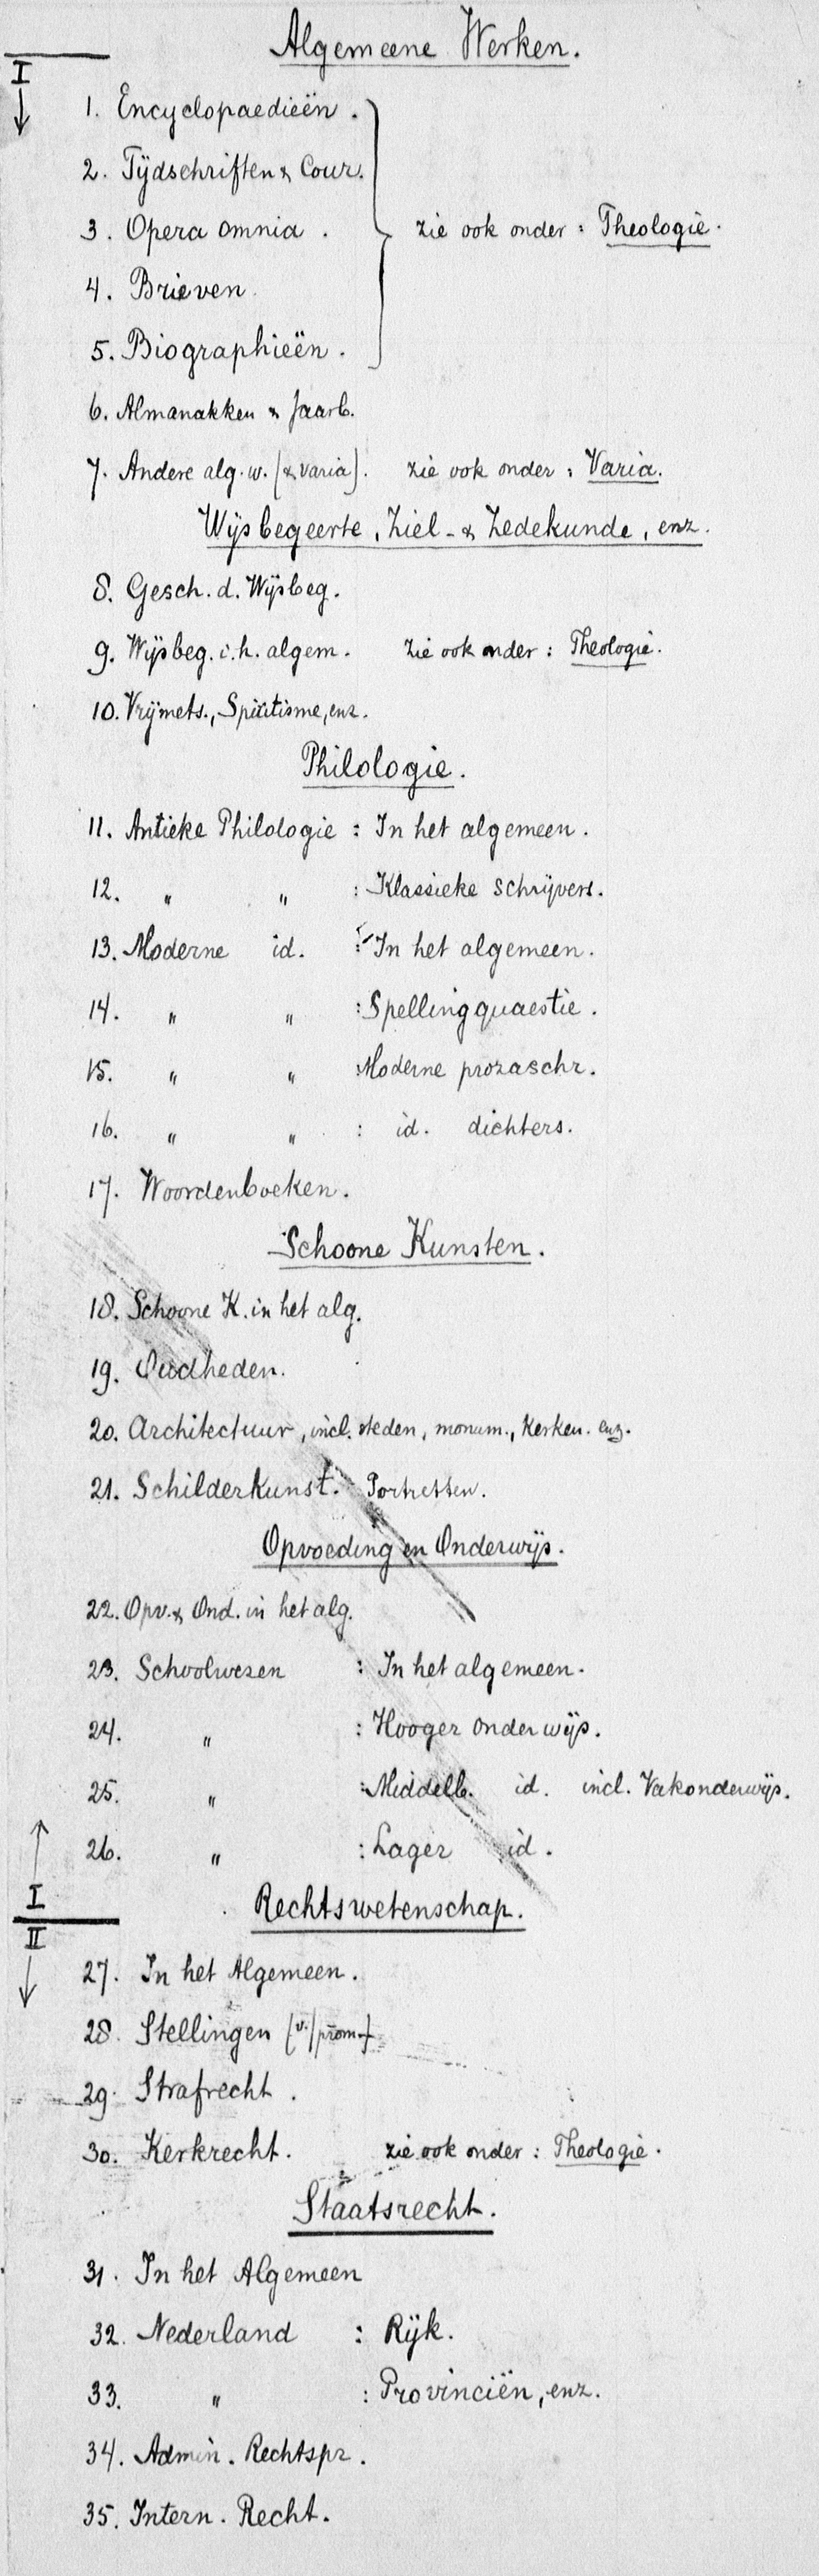 Algemeene Werken.
I
1. Encyclopaedieën.
2. Tijdschriften & Cour.
3. Opera omnia. zie ook onder: Theologie.
4. Brieven
5. Biographieën.
6. Almanakken & Jaarb.
7. Andere alg. w. (& varia). zie ook onder: Varia.
Wijsbegeerte, Ziel- & Zedekunde, enz.
8. Gesch. d. Wijsbeg.
9. Wijsbeg. i. h. algem. zie ook onder: Theologie.
10. Vrijmets., Spiritisme, enz.
Philologie.
11. Antieke Philologie: In het algemeen.
12. " " : Klassieke schrijvers.
13. Moderne id. : In het algemeen.
14. " " : Spellingquaestie.
15. " " : Moderne prozaschr.
16. " " : id. dichters.
17. Woordenboeken.
Schoone Kunsten.
18. Schoone K. in het alg.
19. Oudheden.
20. Architectuur, incl. steden, monum., kerken. enz.
21. Schilderkunst. Portretten.
Opvoeding en Onderwijs.
22. Opv. & Ond. in het alg.
23. Schoolwezen : In het algemeen.
24. " : Hooger onderwijs.
25. " : Middelb. id. incl. Vakonderwijs.
26. " : Lager id.
I
Rechtswetenschap.
II
27. In het Algemeen.
28. Stellingen (v. prom.)
29. Strafrecht.
30. Kerkrecht. zie ook onder: Theologie.
Staatsrecht.
31. In het Algemeen
32. Nederland : Rijk.
33. " : Provinciën, enz.
34. Admin. Rechtspr.
35. Intern. Recht.